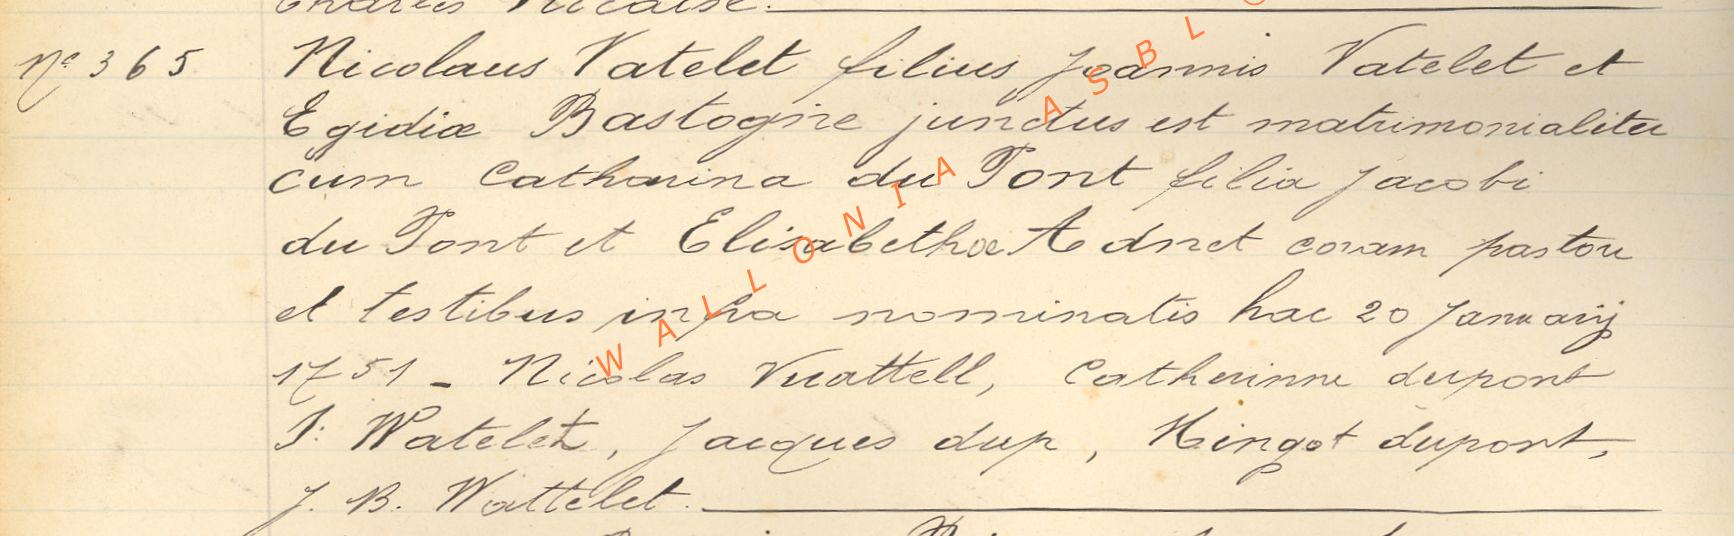 Charles Nicaise.
Nº 365 Nicolaus Vatelet filius Joannis Vatelet et
Egidiæ Bastogne junctus est matrimonialiter
cum Catharina du Pont filia Jacobi
du Pont et Elisabethæ Adnet coram pastore
et testibus infra nominatis hac 20 Januarij
1751 - Nicolas Vuattell, Catherinne dupont
J: Watelet, Jacques dup, Hingot dupont,
J. B. Wattelet.
WALLONIA ASBL